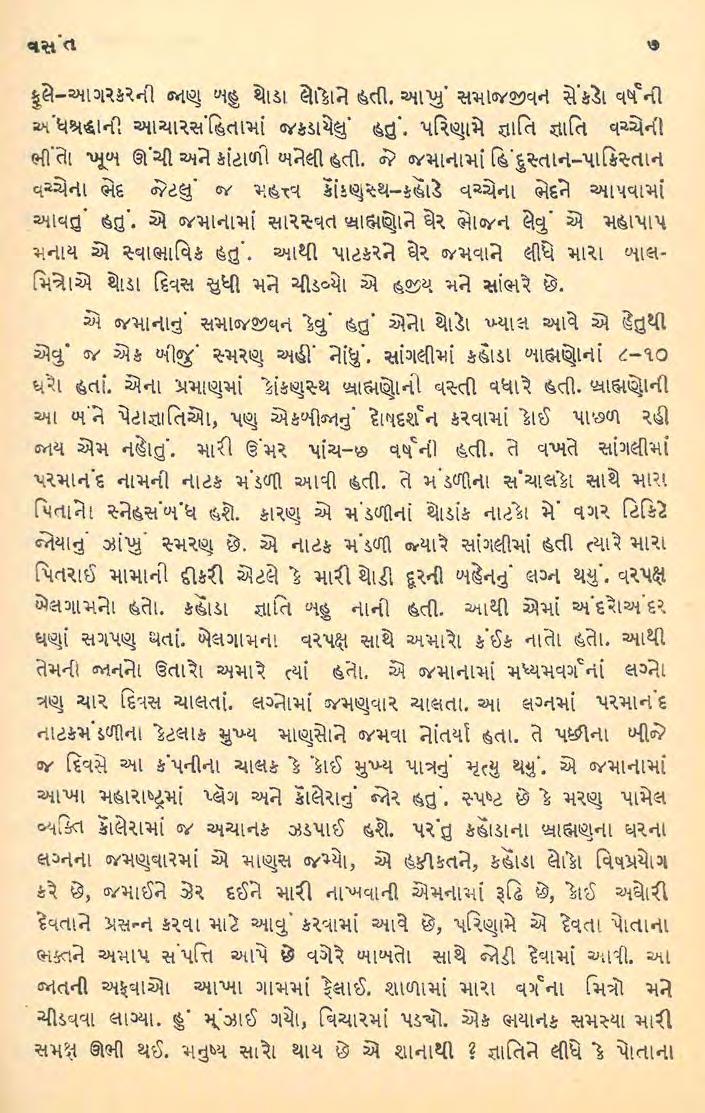 વસંત ૭
ફૂલે–આગરકરની જાણ બહુ થોડા લોકોને હતી. આખું સમાજજીવન સેંકડો વર્ષની
અંધશ્રદ્ધાની આચારસંહિતામાં જકડાયેલું હતું. પરિણામે જ્ઞાતિ જ્ઞાતિ વચ્ચેની
ભીંતો ખૂબ ઊંચી અને કાંટાળી બનેલી હતી. જે જમાનામાં હિંદુસ્તાન–પાકિસ્તાન
વચ્ચેના ભેદ જેટલું જ મહત્ત્વ કોંકણસ્થ–કહ્રાંડે વચ્ચેના ભેદને આપવામાં
આવતું હતું. એ જમાનામાં સારસ્વત બ્રાહ્મણોને ઘેર ભોજન લેવું એ મહાપાપ
મનાય એ સ્વાભાવિક હતું. આથી પાટકરને ઘેર જમવાને લીધે મારા બાલ-
મિત્રોએ થોડા દિવસ સુધી મને ચીડવ્યો એ હજીય મને સાંભરે છે.
એ જમાનાનું સમાજજીવન કેવું હતું એનો થોડો ખ્યાલ આવે એ હેતુથી
એવું જ એક બીજું સ્મરણ અહીં નોંધું. સાંગલીમાં કહ્રાડા બાહ્મણોનાં ૮–૧૦
ઘરો હતાં. એના પ્રમાણમાં કોંકણસ્થ બ્રાહ્મણોની વસ્તી વધારે હતી. બ્રાહ્મણોની
આ બંને પેટાજ્ઞાતિઓ, પણ એકબીજાનું દોષદર્શન કરવામાં કોઈ પાછળ રહી
જાય એમ નહોતું. મારી ઉંમર પાંચ–છ વર્ષની હતી. તે વખતે સાંગલીમાં
પરમાનંદ નામની નાટક મંડળી આવી હતી. તે મંડળીના સંચાલકો સાથે મારા
પિતાનો સ્નેહસંબંધ હશે. કારણ એ મંડળીનાં થોડાંક નાટકો મેં વગર ટિકિટે
જોયાનું ઝાંખું સ્મરણ છે. એ નાટક મંડળી જ્યારે સાંગલીમાં હતી ત્યારે મારા
પિતરાઈ મામાની દીકરી એટલે કે મારી થોડી દૂરની બહેનનું લગ્ન થયું. વરપક્ષ
બેલગામનો હતો. કહ્રાડા જ્ઞાતિ બહુ નાની હતી. આથી એમાં અંદરોઅંદર
ઘણાં સગપણ થતાં. બેલગામના વરપક્ષ સાથે અમારો કંઈક નાતો હતો. આથી
તેમની જાનનો ઉતારો અમારે ત્યાં હતો. એ જમાનામાં મધ્યમવર્ગનાં લગ્નો
ત્રણ ચાર દિવસ ચાલતાં. લગ્નોમાં જમણવાર ચાલતા. આ લગ્નમાં પરમાનંદ
નાટકમંડળીના કેટલાક મુખ્ય માણસોને જમવા નોંતર્યાં હતા. તે પછીના બીજે
જ દિવસે આ કંપનીના ચાલક કે કોઈ મુખ્ય પાત્રનું મૃત્યુ થયું. એ જમાનામાં
આખા મહારાષ્ટ્રમાં પ્લેગ અને કૉલેરાનું જોર હતું. સ્પષ્ટ છે કે મરણ પામેલ
વ્યક્તિ કૉલેરામાં જ અચાનક ઝડપાઈ હશે. પરંતુ કહ્રાડાના બ્રાહ્મણના ઘરના
લગ્નના જમણવારમાં એ માણસ જમ્યો, એ હકીકતને, કહ્રાડા લોકો વિષપ્રયોગ
કરે છે, જમાઈને ઝેર દઈને મારી નાખવાની એમનામાં રૂઢિ છે, કોઈ અઘોરી
દેવતાને પ્રસન્ન કરવા માટે આવું કરવામાં આવે છે, પરિણામે એ દેવતા પોતાના
ભક્તને અમાપ સંપત્તિ આપે છે વગેરે બાબતો સાથે જોડી દેવામાં આવી. આ
જાતની અફવાઓ આખા ગામમાં ફેલાઈ. શાળામાં મારા વર્ગના મિત્રો મને
ચીડવવા લાગ્યા. હું મૂંઝાઈ ગયો, વિચારમાં પડ્યો. એક ભયાનક સમસ્યા મારી
સમક્ષ ઊભી થઈ. મનુષ્ય સારો થાય છે એ શાનાથી ? જ્ઞાતિને લીધે કે પોતાના